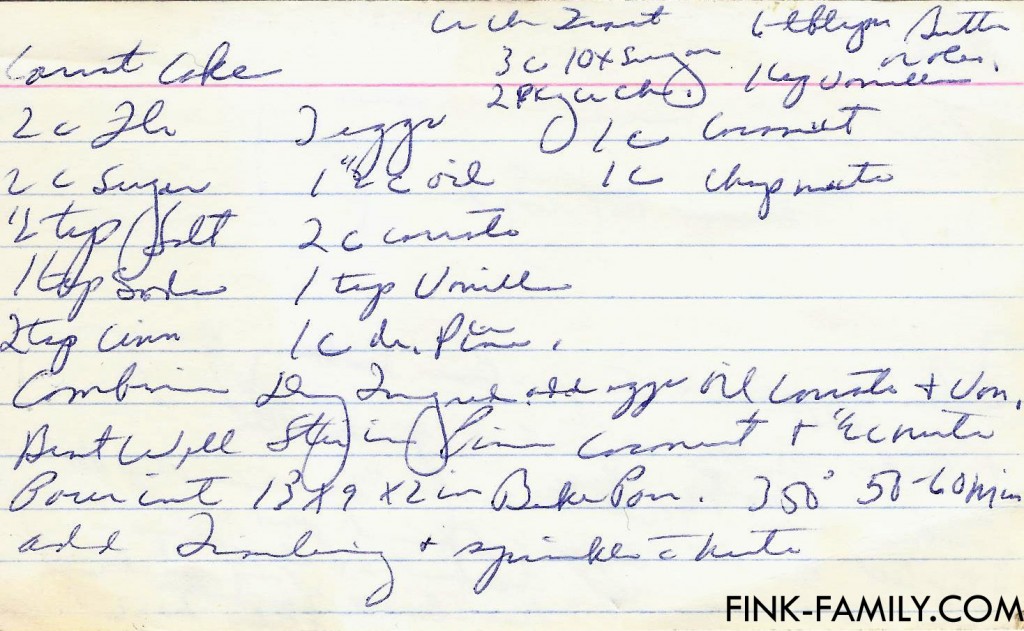 Cr Ch Frost 6 tblspn Butter
Carrot Cake 3 c 10x Sugar or oleo.
2 pkg cr ch. 1 tsp Vanilla
2 c Flr 3 eggs 1 c Coconut
2 c Sugar 1 1/2 c oil 1 c chop nuts
1/2 tsp Salt 2 c carrots
1 tsp Soda 1 tsp Vanilla
2 tsp Cinn 1 c dr. Pine.
Combine Dry Ingred. add eggs oil Carrots + Van.
Beat Well Stir in Pine coconut + 1/2 c nuts
Pour into 13 x 9 x 2 in Bake Pan. 350° 50-60 min
add + sprinkle c̄ nuts
FINK-FAMILY.COM